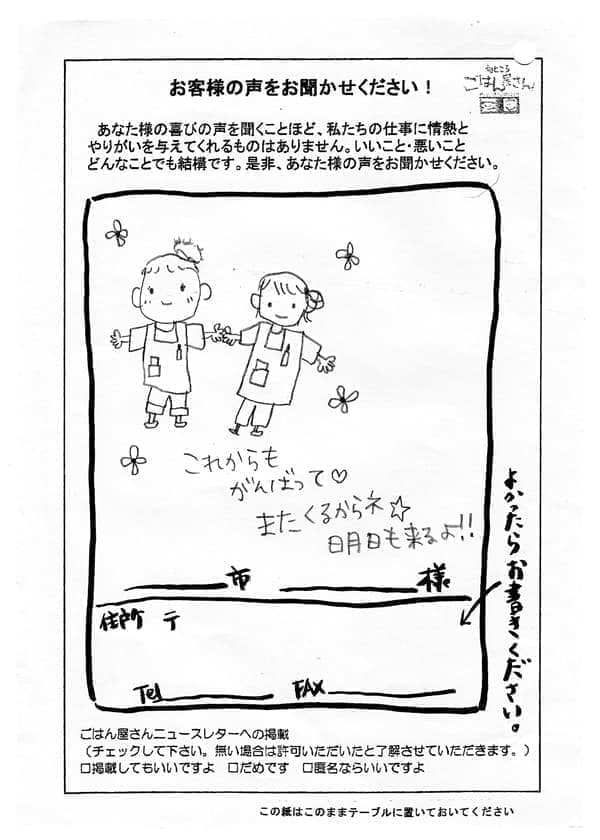 旬どころ
ごはん屋さん
お客様の声をお聞かせください！
あなた様の喜びの声を聞くことほど、私たちの仕事に情熱と
やりがいを与えてくれるものはありません。いいこと・悪いこと
どんなことでも結構です。是非、あなた様の声をお聞かせください。
これからも
がんばって♡
またくるからネ☆
明日も来るよ!!
市 様
よかったらお書きください。
住所 〒
Tel FAX
ごはん屋さんニュースレターへの掲載
（チェックして下さい。無い場合は許可いただいたと了解させていただきます。）
□掲載してもいいですよ □だめです □匿名ならいいですよ
この紙はこのままテーブルに置いておいてください